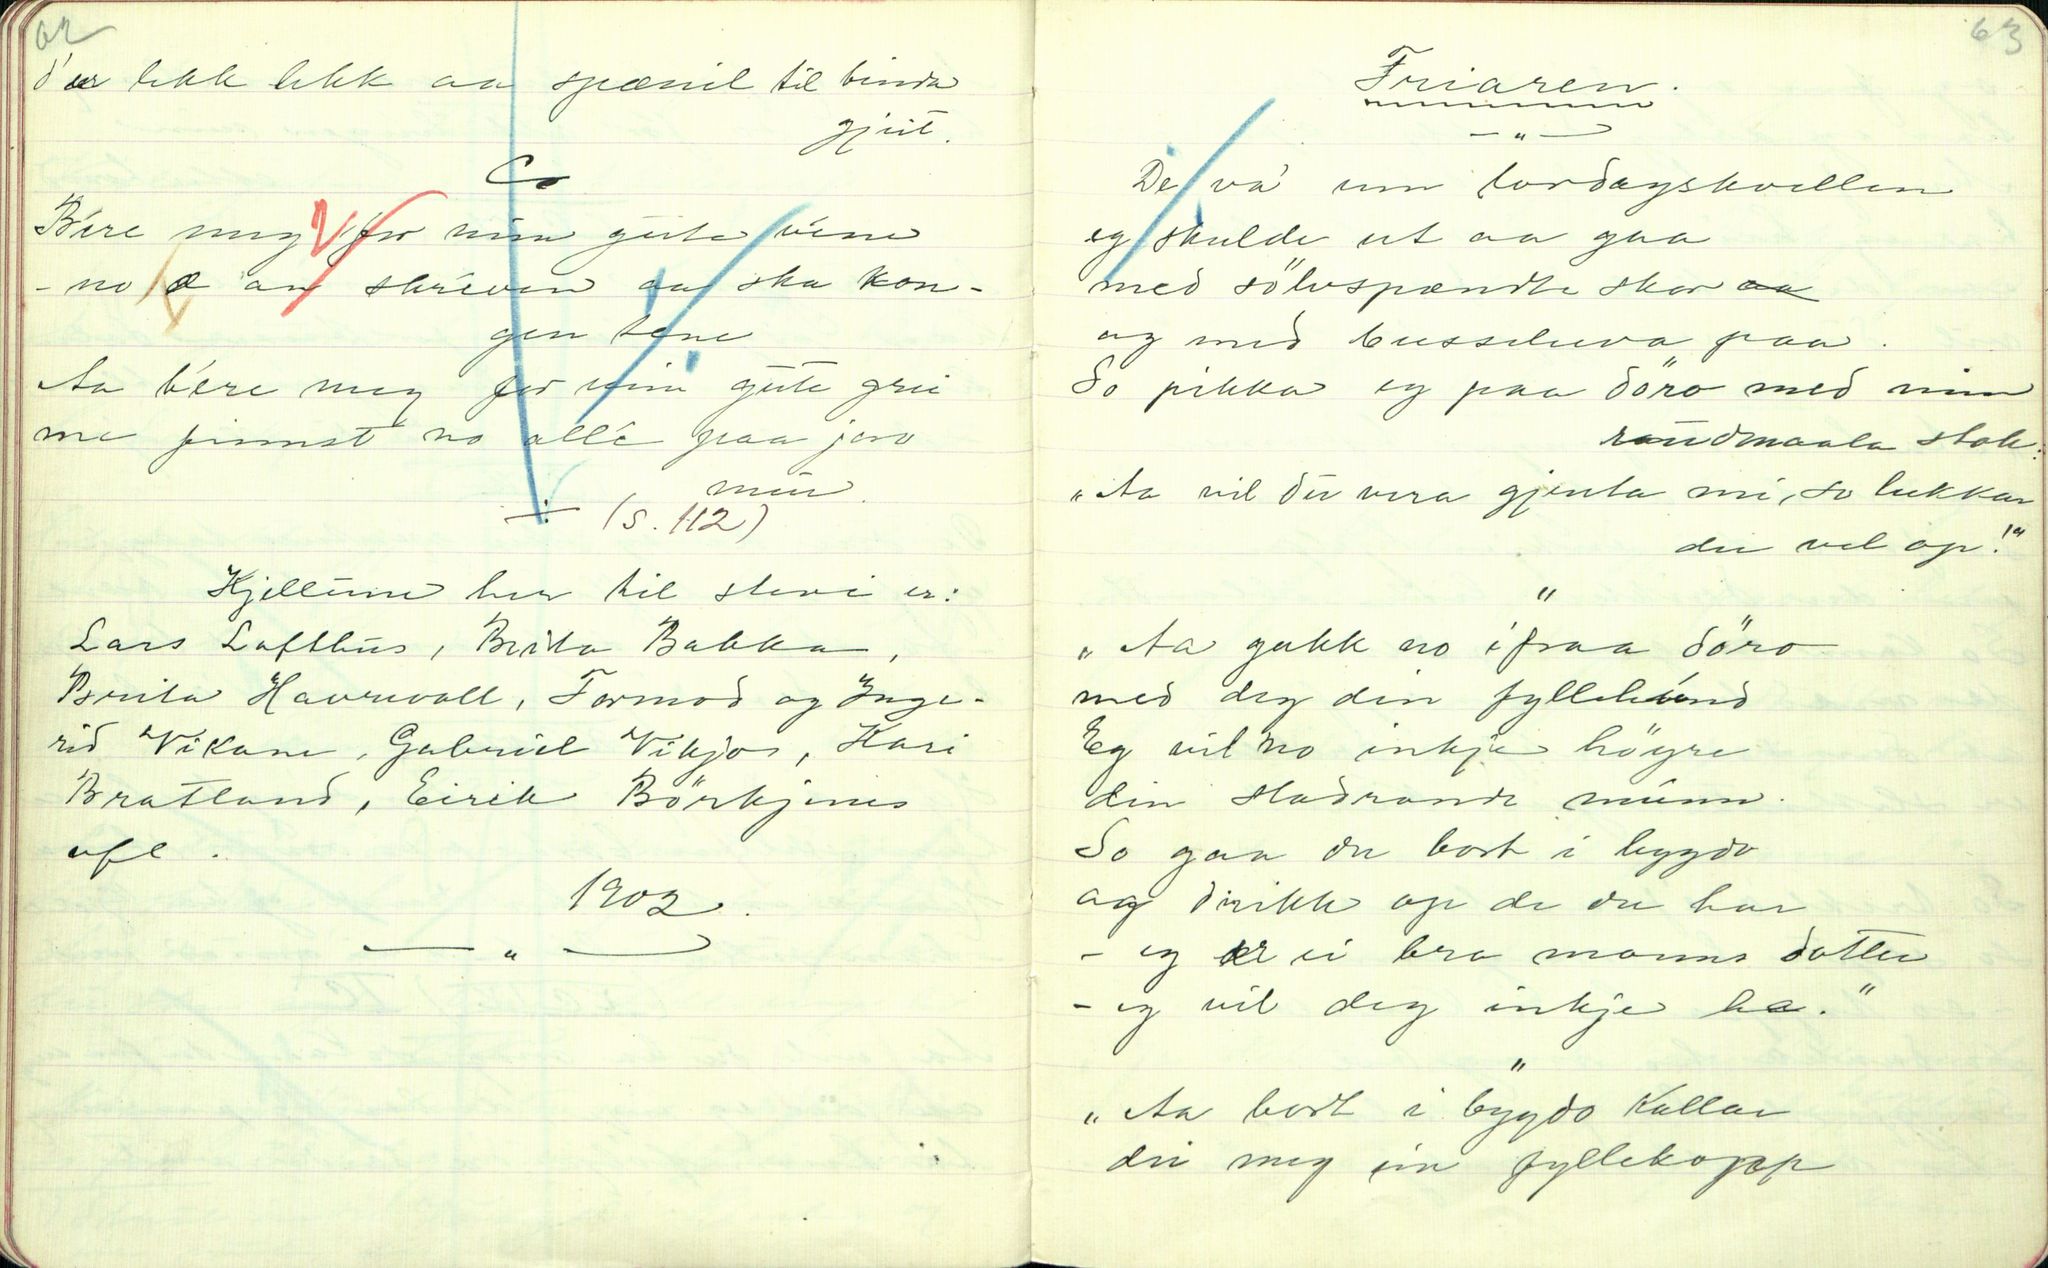 62
d'er lekk lekk aa spænil til binda
gjeit.
Bére meg for min gúte véne
- no æ an skréven aa ska kon-
gen tene
Aa bére meg for min gúte grei
me finnst no allé paa jor
mei.
(s. 112)
Kjellúne her til stevi er:
Lars Lofthús, Brita Bakka,
Brita Haurevoll, Tormod og Inge-
rid Vikane, Gabriel Vikjor, Kari
Bratland, Eirik Börkjenes
ofl.
1902.
— " —
63
Friaren.
— " —
De va' um lordagskvellen
eg skulde ut aa gaa
med sölvspændte skor
og med busseluva paa.
So pikka eg paa döro med min
raudmaala stok:
„Aa vil du vera gjenta mi, so lukkar
du vel op!"
"
„Aa gakk no ifraa döro
med deg din fyllehúnd
Eg vil no inkje höyre
din sladrande múnn.
So gaa du bort i bygdo
og drikk op de du har
- eg er ei bra manns dotter
- eg vil deg inkje ha."
"
„Aa bort i bygdo kallar
du meg ein fyllekopp